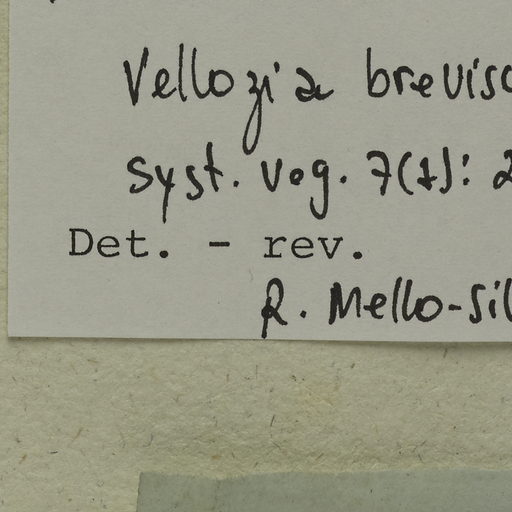 Vellozia brevisc
syst. veg. 7(1): 2
Det. - rev.
R. Mello-Sil